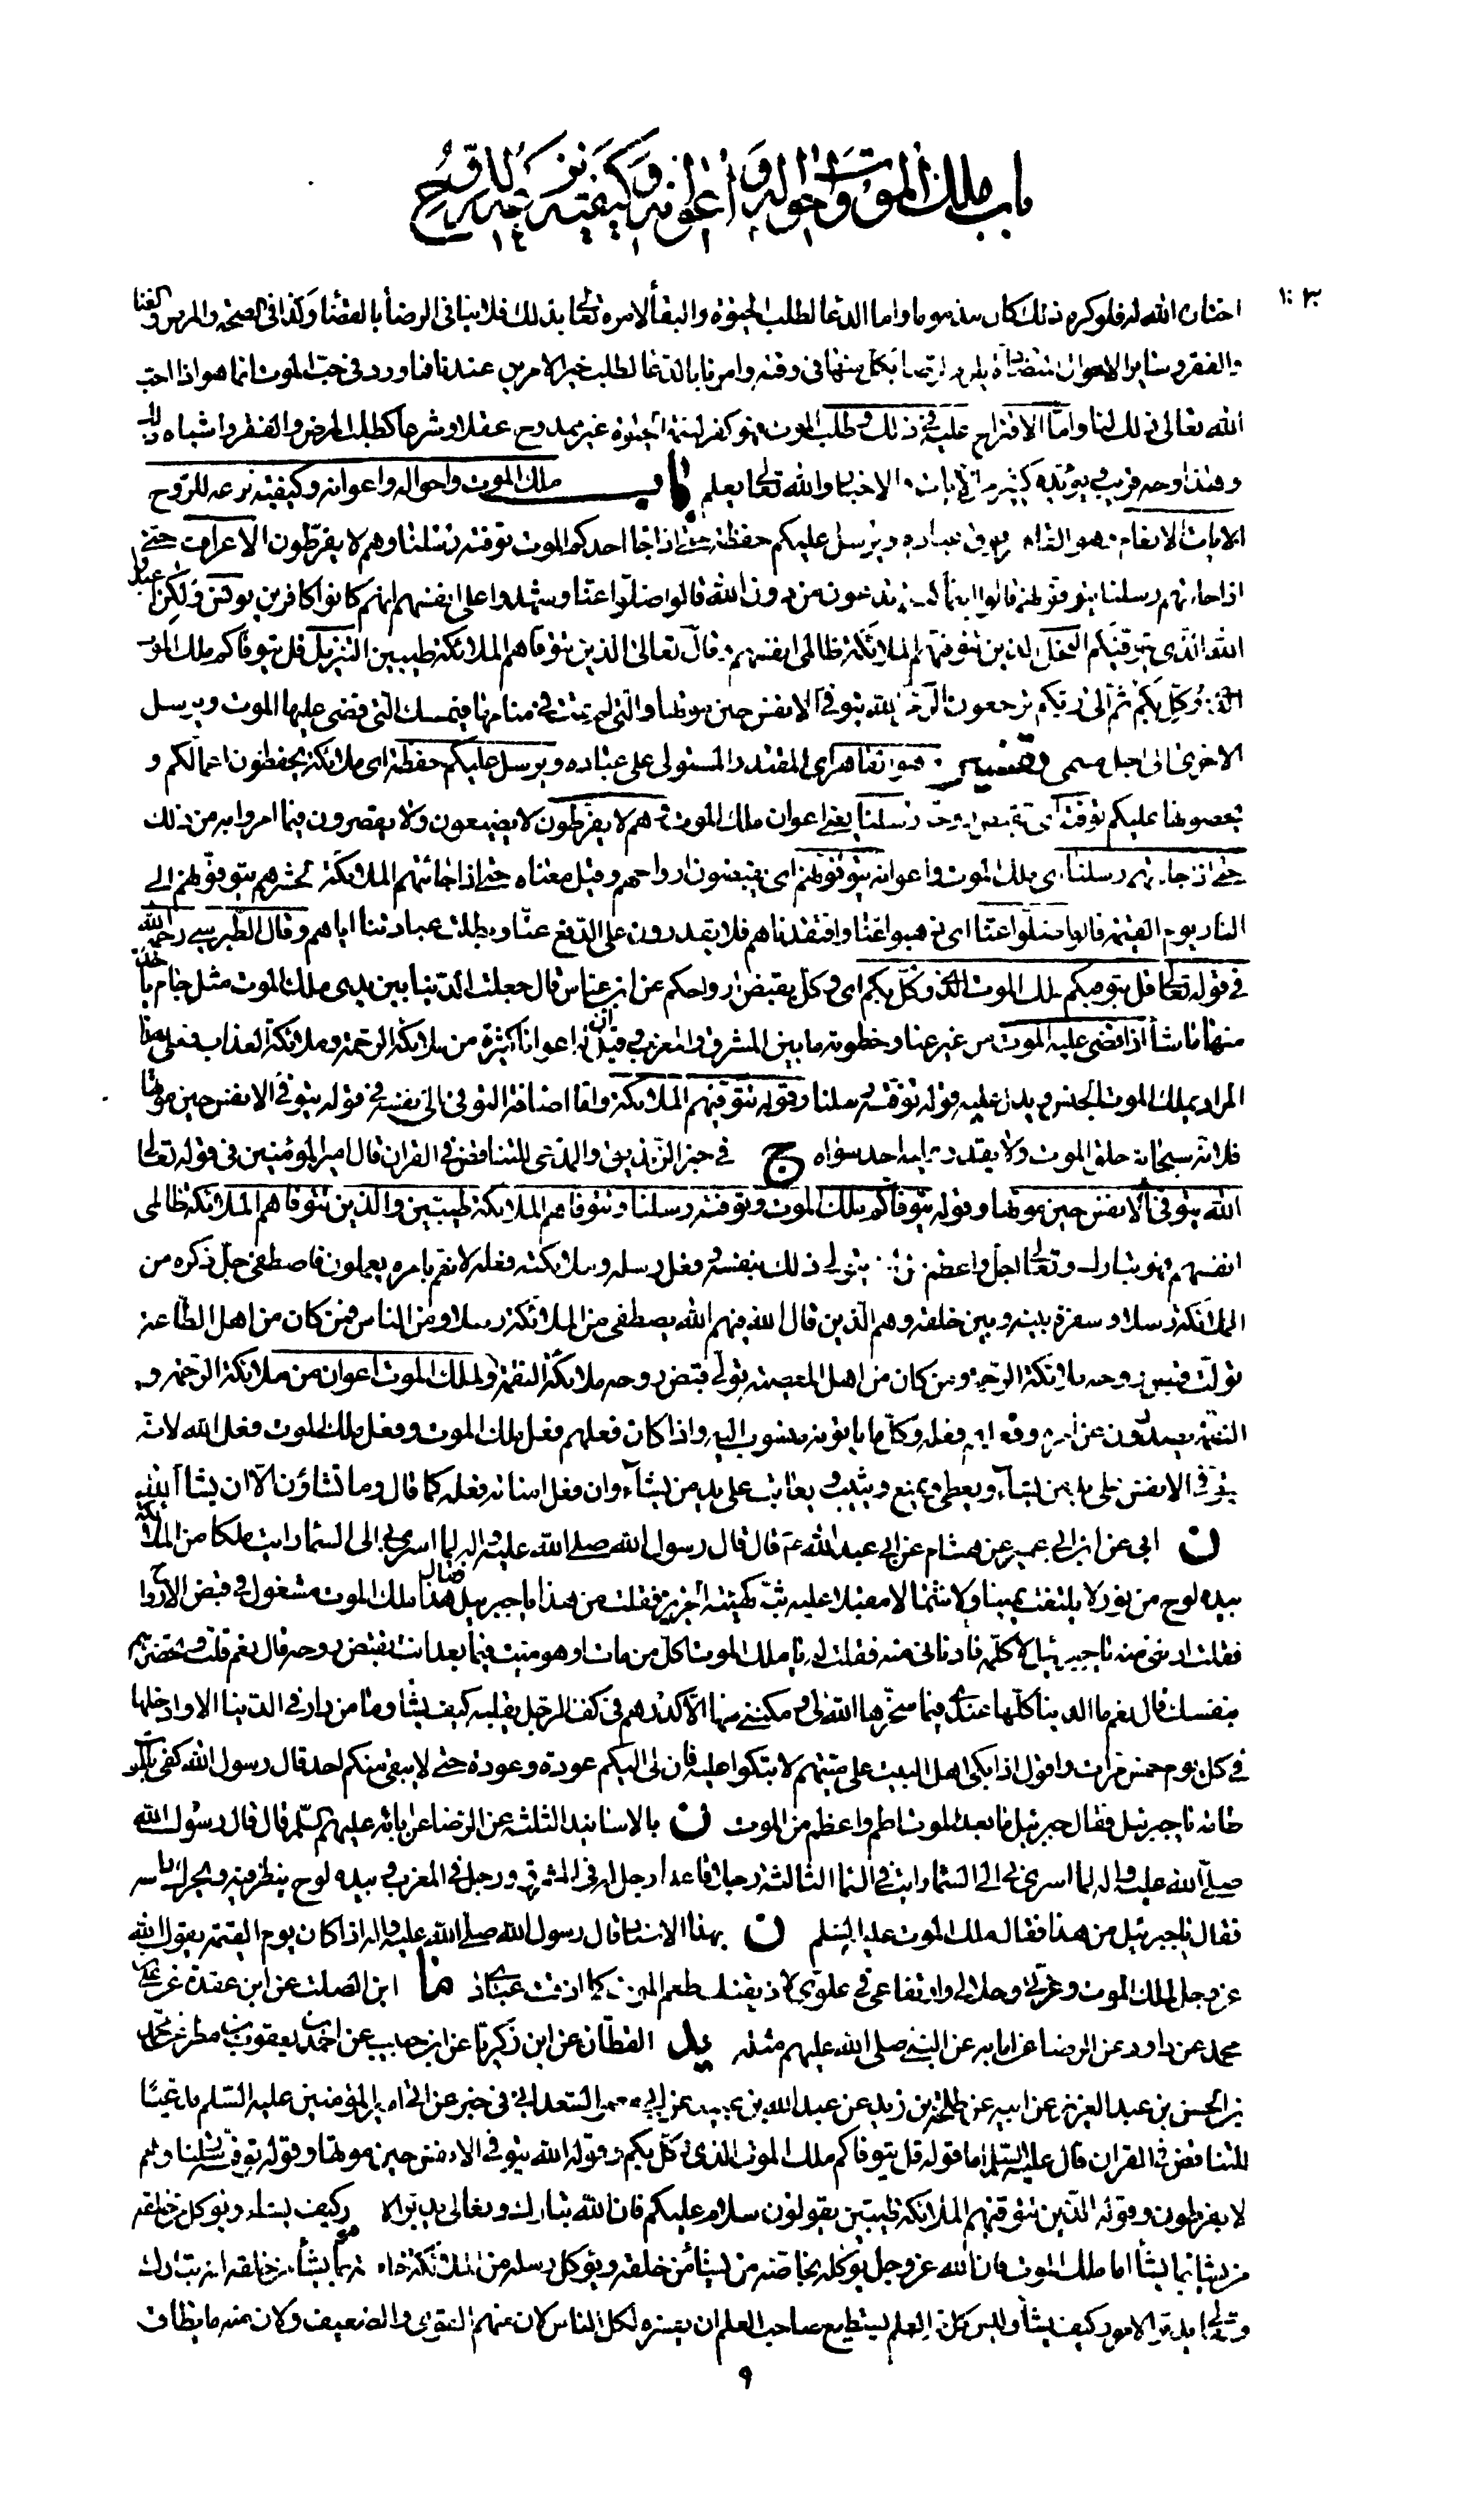 باب ملك الموت واحواله واعوانه وكيفية نزعه للروح
اختاره الله له فلو كره ذلك كان مذموما واما الدعا لطلب الحيوة والبقأ لامره تعالى بذلك فلا ينافى الرضأ بالقضأ وكذا فى الصحة والمرض والغنا
والفقر وساير الاحوال المتضادة يلزم الرضا بكل منها فى وقته وامرنا بالدعا لطلب خير الامرين عندنا فما ورد فى حب الموت انما هو اذا احب
الله تعالى ذلك لنا واما الاقتراح عليه فى ذلك وطلب الموت فهو كفر لنعمة الحيوة غير ممدوح عقلا وشرعا كطلب المرض والفقر واشباه ذلك
وهذا وجه قريب ويؤيده كثير من الايات والاخبار والله تعالى يعلم باب ملك الموت واحواله واعوانه وكيفية نزعه للروح
الايات الانعام وهو القاهر فوق عباده ويرسل عليكم حفظة حتى اذا جا احدكم الموت توفته رسلنا وهم لا يفرطون الاعراف حتى
اذا جاءتهم رسلنا يتوفونهم قالوا اينما كنتم تدعون من دون الله قالوا ضلوا عنا وشهدوا على انفسهم انهم كانوا كافرين يونس ولكن اعبد
الله الذى يتوفيكم النحل الذين تتوفيهم الملائكة ظالمى انفسهم وقال تعالى الذين تتوفاهم الملائكة طيبين التنزيل قل يتوفاكم ملك الموت
الذى وكل بكم ثم الى ربكم ترجعون الزمر الله يتوفى الانفس حين موتها والتى لم تمت فى منامها فيمسك التى قضى عليها الموت ويرسل
الاخرى الى اجل مسمى تفسير وهو القاهر اى المقتدر المستولى على عباده ويرسل عليكم حفظة اى ملائكة يحفظون اعمالكم و
يحصونها عليكم توفته اى تقبض روحه رسلنا يعنى اعوان ملك الموت وهم لا يفرطون لا يضيعون ولا يقصرون فيما امروا به من ذلك
حتى اذا جاءتهم رسلنا اى ملك الموت واعوانه يتوفونهم اى يقبضون ارواحهم وقيل معناه حتى اذا جائتهم الملائكة لحشرهم يتوفونهم الى
النار يوم القيمة قالوا ضلوا عنا اى ذهبوا عنا وافتقدناهم فلا يقدرون على الدفع عنا وبطلت عبادتنا اياهم وقال الطبرسى رحمه الله
فى قوله تعالى قل يتوفيكم ملك الموت الذى وكل بكم اى وكل بقبض ارواحكم عن ابن عباس قال جعلت الدنيا بين يدى ملك الموت مثل جام ياخذ
منها ما شأ اذا قضى عليه الموت من غير عنا وخطوته ما بين المشرق والمغرب وقيل ان له اعوانا كثيرة من ملائكة الرحمة وملائكة العذاب فعلى هذا
المراد بملك الموت الجنس ويدل عليه قوله توفته رسلنا وقوله تتوفيهم الملائكة واما اضافة التوفى الى نفسه فى قوله يتوفى الانفس حين موتها
فلانه سبحانه خلق الموت ولا يقدر عليه احد سواه ج فى خبر الزنديق والمدعى للتناقض فى القران قال امير المؤمنين فى قوله تعالى
الله يتوفى الانفس حين موتها وقوله يتوفاكم ملك الموت وتوفته رسلنا وتتوفاهم الملائكة طيبين والذين تتوفاهم الملائكة ظالمى
انفسهم فهو تبارك وتعالى اجل واعظم من ان يتولى ذلك بنفسه وفعل رسله وملائكته فعله لانهم بامره يعملون فاصطفى جل ذكره من
الملائكة رسلا وسفرة بينه وبين خلقه وهم الذين قال الله فيهم الله يصطفى من الملائكة رسلا ومن الناس فمن كان من اهل الطاعة
تولت قبض روحه ملائكة الرحمة ومن كان من اهل المعصية تولى قبض روحه ملائكة النقمة ولملك الموت اعوان من ملائكة الرحمة و
النقمة يصدرون عن امره وفعلهم فعله وكل ما ياتونه منسوب اليه واذا كان فعلهم فعل ملك الموت وفعل ملك الموت فعل الله لانه
يتوفى الانفس على يد من يشاء ويعطى ويمنع ويثيب ويعاقب على يد من يشاء وان فعل امنائه فعله كما قال وما تشاؤن الا ان يشأ الله
ن ابى عن ابن ابى عمير عن هشام عن ابى عبد الله ع قال قال رسول الله صلى الله عليه واله لما اسرى بى الى السما رايت ملكا من الملائكة
بيده لوح من نور لا يلتفت يمينا ولا شمالا مقبلا عليه ثبه كهيئة الحزين فقلت من هذا يا جبرئيل فقال هذا ملك الموت مشغول فى قبض الارواح
فقلت ادننى منه يا جبرئيل لاكلمه فادنانى منه فقلت له يا ملك الموت اكل من مات او هو ميت فيما بعد انت تقبض روحه قال نعم قلت وتحضرهم
بنفسك قال نعم ما الدنيا كلها عندى فيما سخرها الله لى ومكننى منها الا كدرهم فى كف الرجل يقلبه كيف يشأ وما من دار فى الدنيا الا وادخلها
فى كل يوم خمس مرات واقول اذا بكى اهل البيت على ميتهم لا تبكوا عليه فان لى اليكم عودة وعودة حتى لا يبقى منكم احد قال رسول الله كفى بالموت
طامة يا جبرئيل فقال جبرئيل ما بعد الموت اطم واعظم من الموت ن بالاسانيد الثلثة عن الرضا عن ابائه عليهم السلم قال قال رسول الله
صلى الله عليه واله لما اسرى بى الى السما رايت فى السما الثالثة رجلا قاعدا رجل له فى المشرق ورجل فى المغرب وبيده لوح ينظر فيه ويحرك راسه
فقال يا جبرئيل من هذا فقال ملك الموت عليه السلم ن بهذا الاسناد قال رسول الله صلى الله عليه واله اذا كان يوم القيمة يقول الله
عز وجل لملك الموت وعزتى وجلالى وارتفاعى فى علوى لاذيقنك طعم الموت كما اذقت عبادى ما ابن الصلت عن ابن عقدة عن على بن
محمد عن داود عن الرضا عن ابائه عن النبى صلى الله عليهم مثله يد القطان عن ابن زكريا عن ابن حبيب عن احمد بن يعقوب بن مطر عن محمد
بن الحسن بن عبد العزيز عن ابيه عن طلحة بن زيد عن عبد الله بن عبيد عن ابى معمر السعدانى فى خبر من اتى امير المؤمنين عليه السلم مدعيا
للتناقض فى القران قال عليه السلم اما قوله قل يتوفاكم ملك الموت الذى وكل بكم وقوله الله يتوفى الانفس حين موتها وقوله توفته رسلنا وهم
لا يفرطون وقوله الذين تتوفيهم الملائكة طيبين يقولون سلام عليكم فان الله تبارك وتعالى يدبر الامور كيف يشاء ويوكل من خلقه
من يشا بما يشأ اما ملك الموت فان الله عز وجل يوكله بخاصة من يشأ من خلقه ويوكل رسله من الملائكة خاصة بمن يشأ من خلقه انه تبارك
وتعالى يدبر الامور كيف يشأ وليس كل العلم يستطيع صاحب العلم ان يفسره لكل الناس لان منهم القوى والضعيف ولان منه ما يطاق
٩